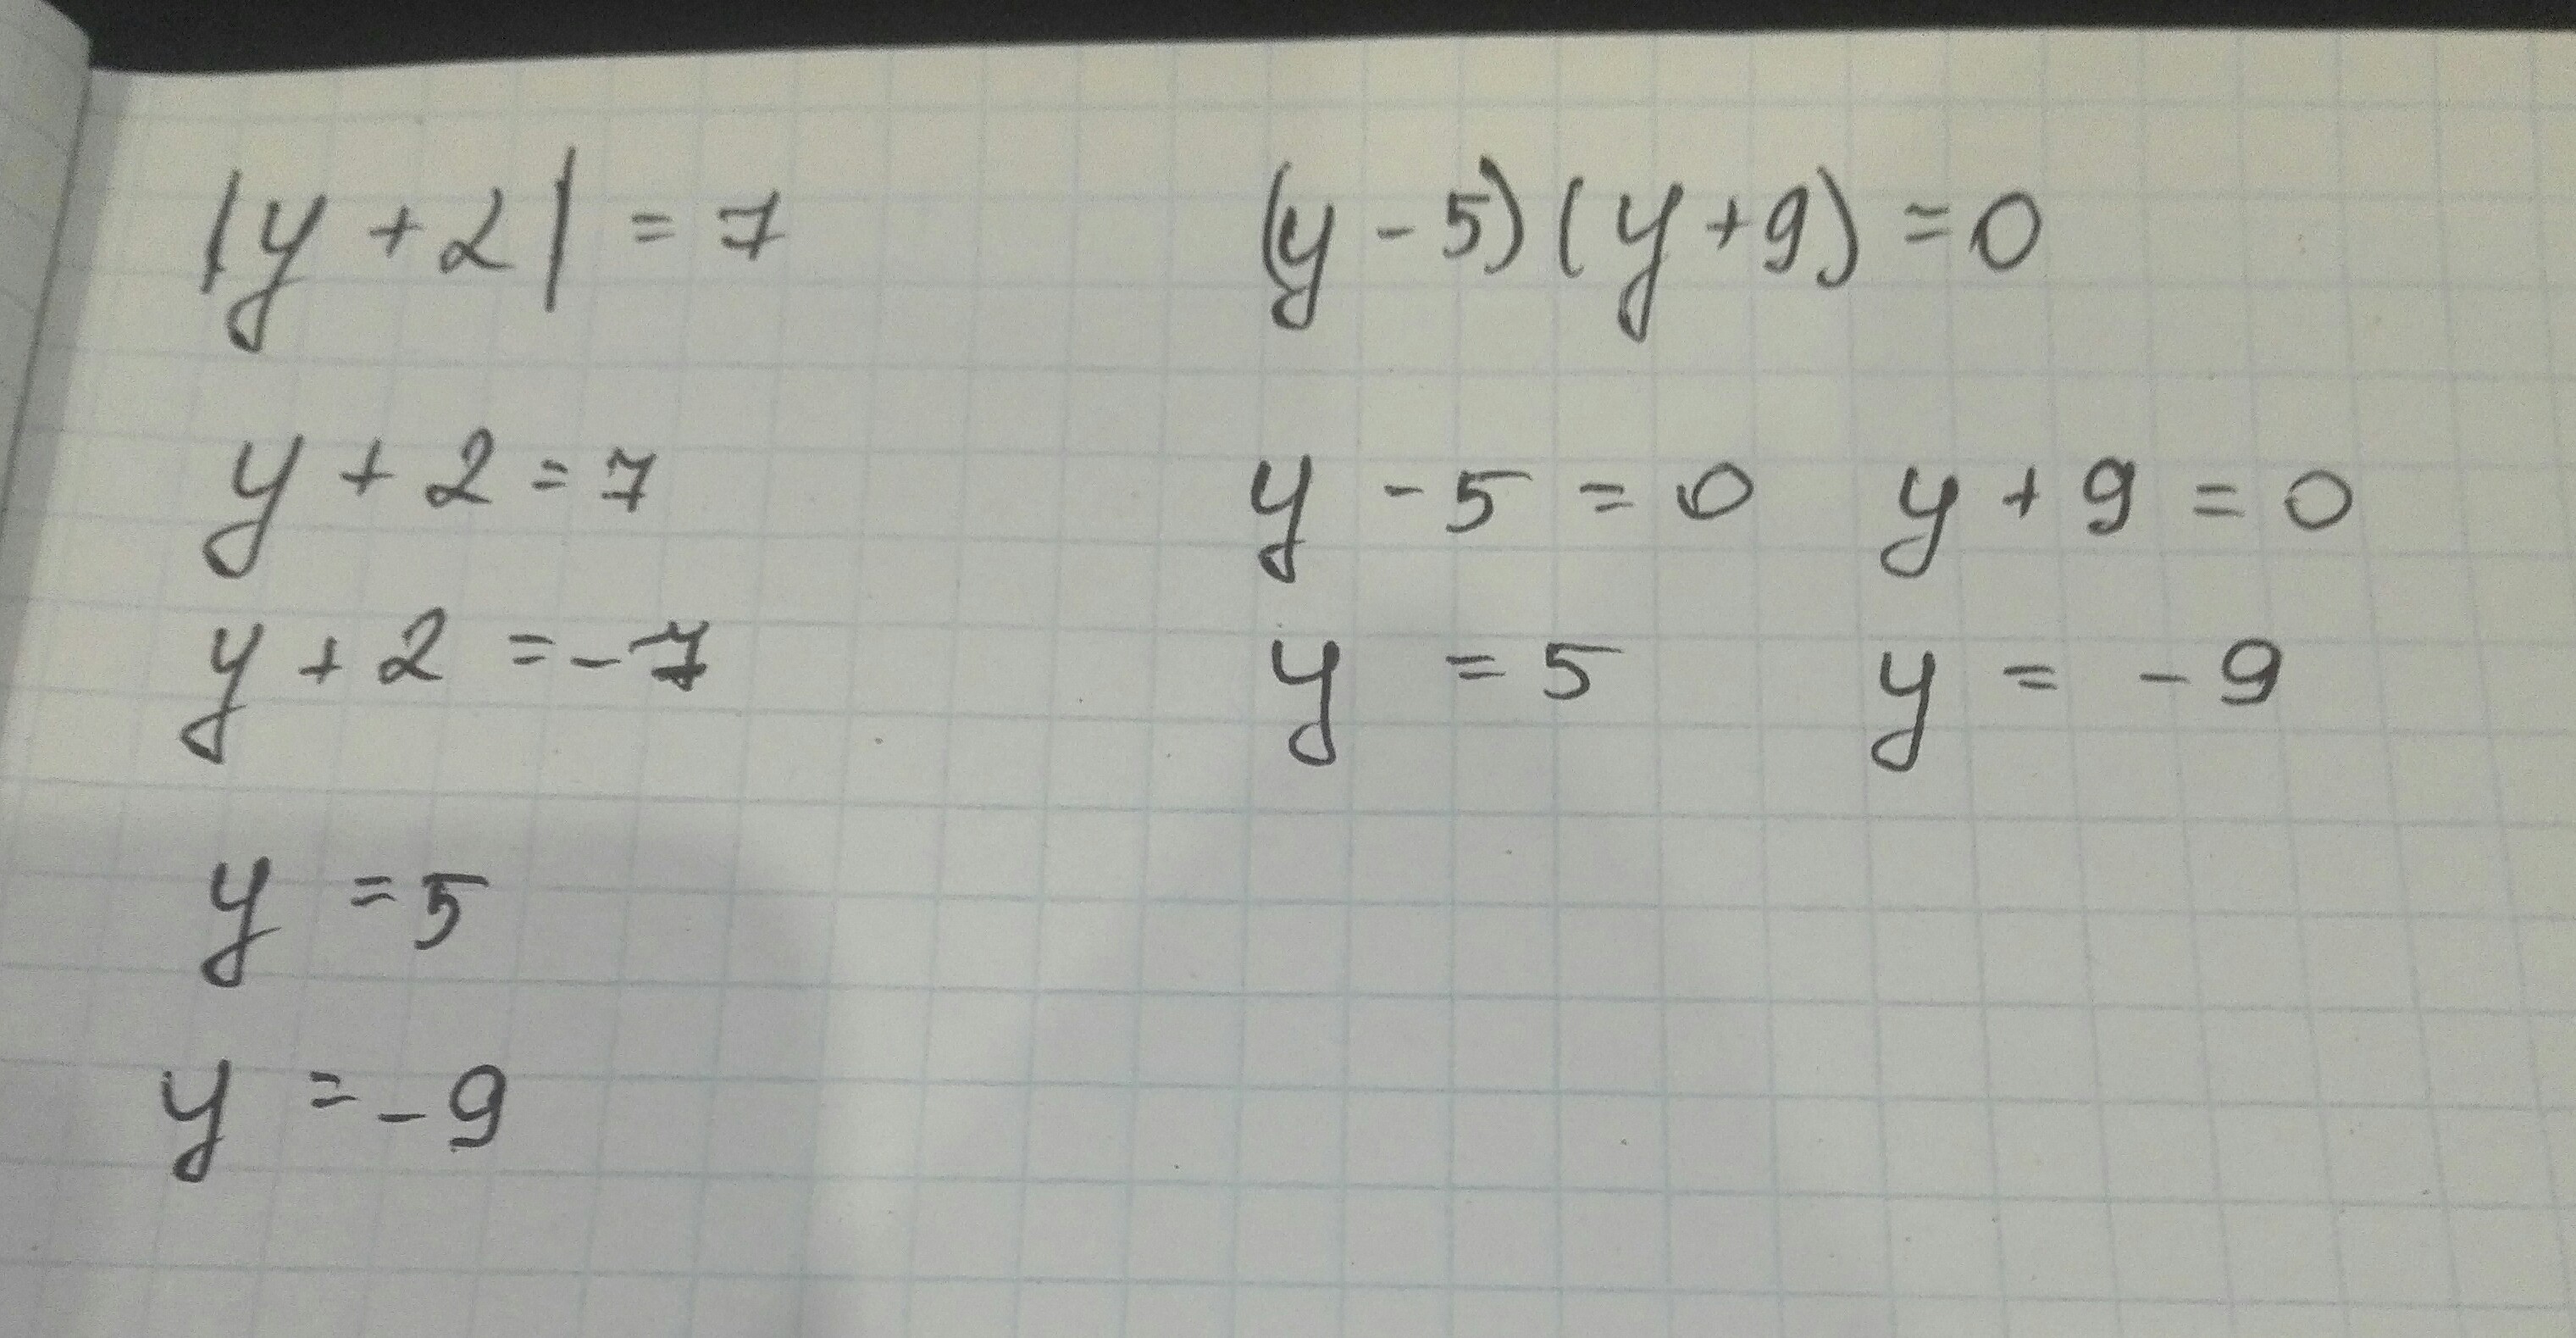 |y + 2| = 7
y + 2 = 7
y + 2 = -7
y = 5
y = -9
(y - 5) (y + 9) = 0
y - 5 = 0 y + 9 = 0
y = 5 y = -9